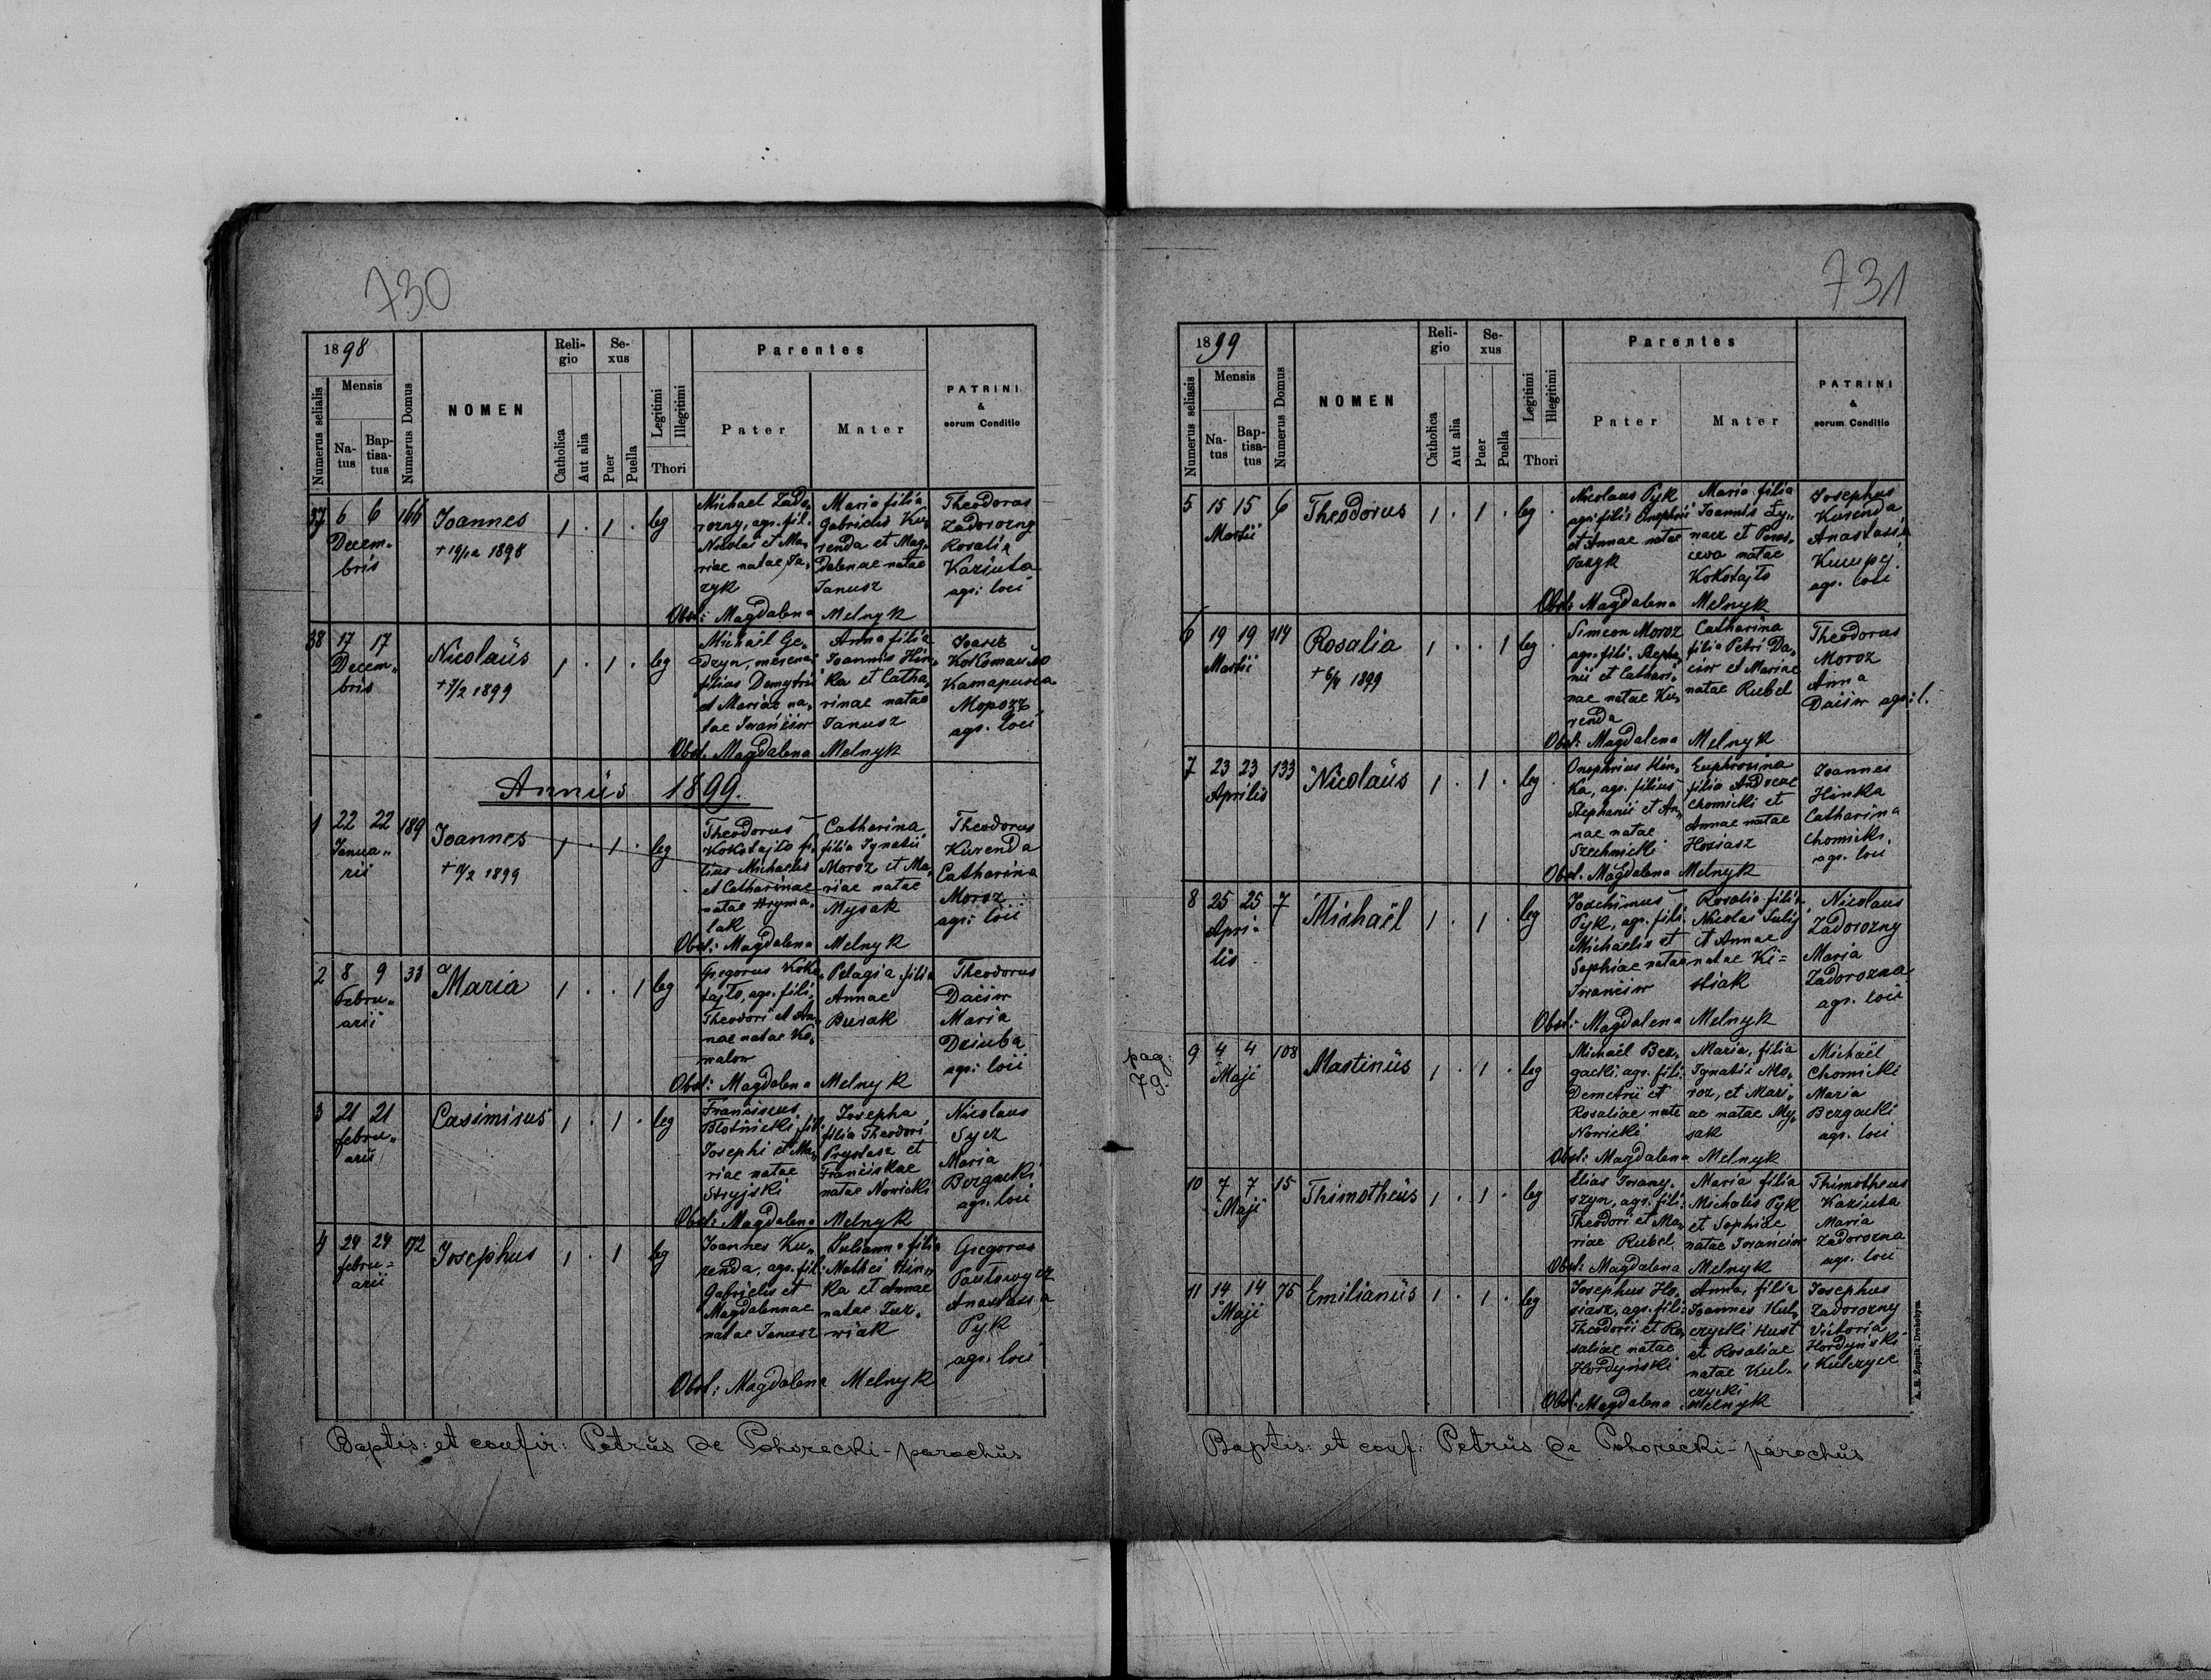 730
1898
Numerus serialis
Mensis
Natus
Baptisatus
Numerus Domus
NOMEN
Religio
Catholica
Aut alia
Sexus
Puer
Puella
Legitimi
Illegitimi
Thori
Parentes
Pater
Mater
PATRINI
&
eorum Conditio
37 6 6 166
Decem„
bris
Joannes
+ 19/12 1898
1 . 1 . leg
Michael Zado„
rozny, agr. fil.
Nicolai et Ma„
riae natae Ja„
zyk
Maria filia
Gabrielis Ku„
renda et Mag„
dalenae natae
Janusz
Theodorus
Zadorozny
Rosalia
Kaziuta
agr: loci
Obst: Magdalena Melnyk
38 17 17
Decem„
bris
Nicolaüs
+ 7/2 1899
1 . 1 . leg
Michaël Ge„
dzyn, merena
filius Demytrii
et Mariae na„
tae Iwanciw
Anna filia
Joannis Hin„
ka et Catha„
rinae natae
Janusz
Морозъ
agr. loci
Obst. Magdalena Melnyk
Annüs 1899.
1 22 22 189
Janua„
rii
Joannes
+ 11/2 1899
1 . 1 . leg
Theodorus
Kokotajło fi„
lius Michaelis
et Catharinae
natae Hryma„
lak
Catharina
filia Ignatii
Moroz et Ma„
riae natae
Mysak
Theodorus
Kurenda
Catharina
Moroz
agr: loci
Obst: Magdalena Melnyk
2 8 9 33
Febru„
arii
Maria
1 . . 1 leg
Gregorus Koko„
tajło, agr. fili„
Theodori et An„
nae natae Ko„
walow
Pelagia filia
Annae
Burak
Theodorus
Daciw
Maria
Dziuba
agr: loci
Obst: Magdalena Melnyk
3 21 21
febru„
arii
Casimirus
1 . 1 . leg
Franciscus
Błotnicki, fil.
Josephi et Ma„
riae natae
Stryjski
Josepha
filia Theodori
Prystasz et
Franciskae
natae Nowicki
Nicolaus
Sycz
Maria
Bezgacki
agr. loci
Obst: Magdalena Melnyk
4 24 24 172
febru=
arii
Josephus
1 . 1 leg
Joannes Ku„
renda, agr. fil:
Gabrielis et
Magdalennae
natae Janusz
Julianna filia
Mathei Hin„
ka et Annae
natae Luz„
niak
Gregorus
Pautowycz
Anastasia
Pyk
agr. loci
Obst: Magdalena Melnyk
Baptis: et confir: Petrüs de Pohorecki-parochüs
731
1899
Numerus seriasis
Mensis
Natus
Baptisatus
Numerus Domus
NOMEN
Religio
Catholica
Aut alia
Sexus
Puer
Puella
Legitimi
Illegitimi
Thori
Parentes
Pater
Mater
PATRINI
&
eorum Conditio
5 15 15 6
Martii
Theodorus
1 . 1 . leg .
Nicolaus Pyk
agr. filis Onephrii
et Annae natae
Jazyk
Maria filia
Joannis Ły„
nacz et Paras„
cewa natae
Kokotajło
Josephus
Kurenda
Anastasia
agr. loci
Obst: Magdalena Melnyk
6 19 19 114
Martii
Rosalia
+ 6/4 1899
1 . . 1 leg .
Simeon Moroz
agr. fili. Stepha„
nii et Cathari„
nae natae Ku„
renda
Catharina
filia Petri Da„
ciw et Mariae
natae Rubel
Theodorus
Moroz
Anna
Daciw agr: l.
Obst: Magdalena Melnyk
7 23 23 133
Aprilis
Nicolaüs
1 . 1 . leg .
Onephrius Hin„
ka, agr. filius
Stephanii et An„
nae natae
Szechnicki
Euphrosina
filia Andreae
Chomicki et
Annae natae
Hosiasz
Joannes
Hinka
Catharina
Chomicki.
agr. loci
Obst. Magdalena Melnyk
8 25 25 7
Apri=
lis
Michaël
1 . 1 . leg
Joachimus
Pyk, agr. fili.
Michaelis et
Sophiae natae
Iwanciw
Rosalia filia
Nicolai Sulij
et Annae
natae Ki=
stiak
Nicolaus
Zadorozny
Maria
Zadorozna
agr. loci
Obst: Magdalena Melnyk
pag:
79.
9 4 4 108
Maji
Martinüs
1 . 1 . leg
Michaël Bez„
gacki, agr. fili:
Demetrii et
Rosaliae nate
Nowicki
Maria, filia
Ignatii Mo„
roz, et Mari„
ae natae My„
sak
Michaël
Chomicki
Maria
Bezgacki
agr. loci
Obst: Magdalena Melnyk
10 7 7 15
Maji
Thimotheüs
1 . 1 . leg
Elias Iwany„
szyn, agr. fili:
Theodori et Ma„
riae Rubel
Maria filia
Michalis Pyk
et Sophiae
natae Iwanciw
Thimotheus
Kaziuta
Maria
Zadorozna
agr. loci
Obst: Magdalena Melnyk
11 14 14 75
Maji
Emilianüs
1 . 1 . leg
Josephus Ho„
siasz, agr. fili:
Theodorii et Ro„
saliae natae
Hordyński
Anna, filia
Joannes Kul„
czycki Hust
et Rosaliae
natae Kul„
czycki
Josephus
Zadorozny
Victoria
Hordyński
z Kulczyce
Obst: Magdalena Melnyk
Baptis: et conf: Petrüs de Pohorecki-parochüs